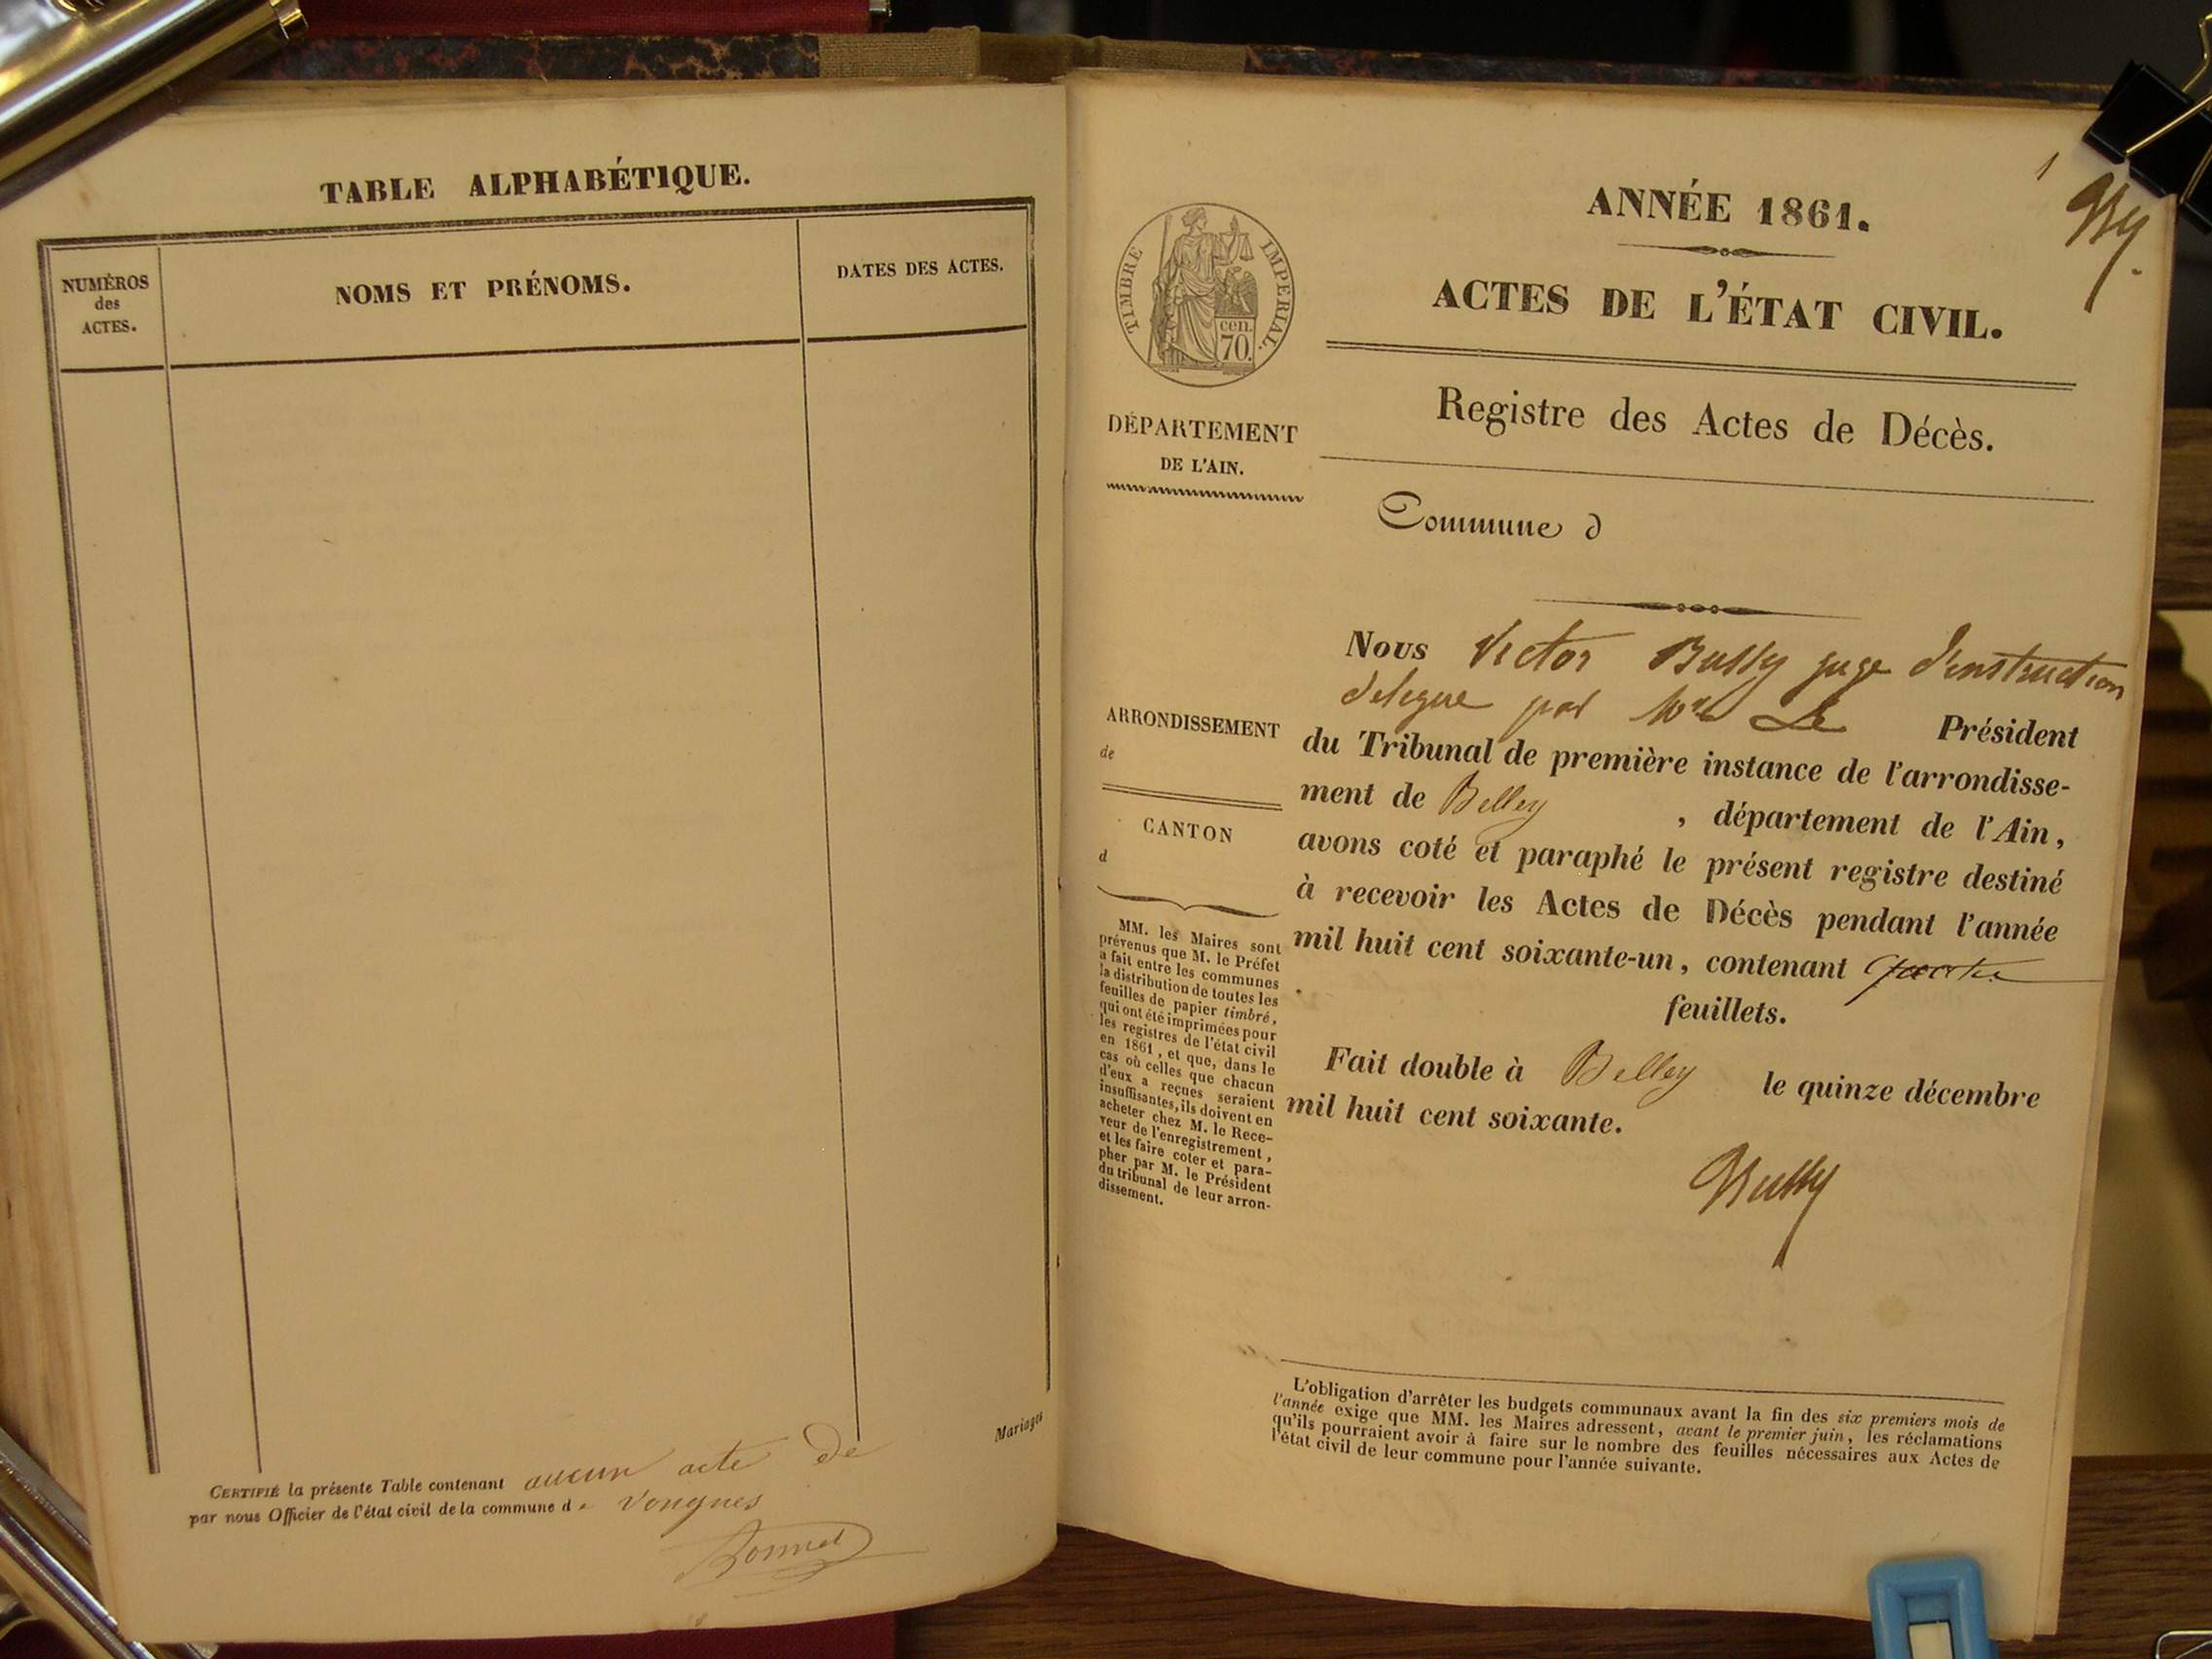 TABLE ALPHABÉTIQUE.
NUMÉROS
des
ACTES.
NOMS ET PRÉNOMS.
DATES DES ACTES.
Mariages
CERTIFIÉ la présente Table contenant aucun acte de
par nous Officier de l'état civil de la commune de Vongnes
Bonnet
1
By.
ANNÉE 1861.
ACTES DE L'ÉTAT CIVIL.
TIMBRE IMPÉRIAL.
cen.
70.
Registre des Actes de Décès.
DÉPARTEMENT
DE L'AIN.
Commune d
Nous Victor Bussy juge d'instruction
délégué par Mr Le Président
du Tribunal de première instance de l'arrondisse-
ment de Belley , département de l'Ain,
avons coté et paraphé le présent registre destiné
à recevoir les Actes de Décès pendant l'année
mil huit cent soixante-un, contenant quatre
feuillets.
Fait double à Belley le quinze décembre
mil huit cent soixante.
Bussy
ARRONDISSEMENT
de
CANTON
d
MM. les Maires sont
prévenus que M. le Préfet
a fait entre les communes
la distribution de toutes les
feuilles de papier timbré,
qui ont été imprimées pour
les registres de l'état civil
en 1861, et que, dans le
cas où celles que chacun
d'eux a reçues seraient
insuffisantes, ils doivent en
acheter chez M. le Rece-
veur de l'enregistrement,
et les faire coter et para-
pher par M. le Président
du tribunal de leur arron-
dissement.
L'obligation d'arrêter les budgets communaux avant la fin des six premiers mois de
l'année exige que MM. les Maires adressent, avant le premier juin, les réclamations
qu'ils pourraient avoir à faire sur le nombre des feuilles nécessaires aux Actes de
l'état civil de leur commune pour l'année suivante.